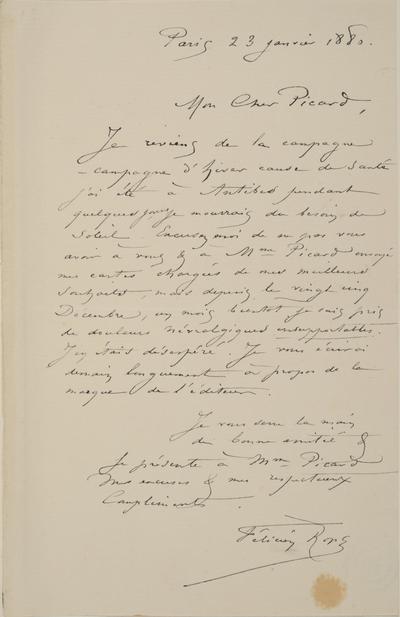 Paris 23 janvier 1880.
Mon Cher Picard,
Je reviens de la campagne
– campagne d'hiver cause de santé
j'ai été à Antibes pendant
quelques jours je mourrais du besoin de
Soleil. Excusez moi de ne pas vous
avoir à vous & à Mme Picard envoyé
mes cartes chargées de mes meilleurs
souhaits, mais depuis le vingt cinq
Décembre, un mois bientôt je suis pris
de douleurs névralgiques insupportables.
J'en étais désespéré. Je vous écrirai
demain longuement à propos de la
marque de l'éditeur.
Je vous serre la main
de bonne amitié &
je présente à Mme Picard
mes excuses & mes respectueux
Compliments.
Félicien Rops